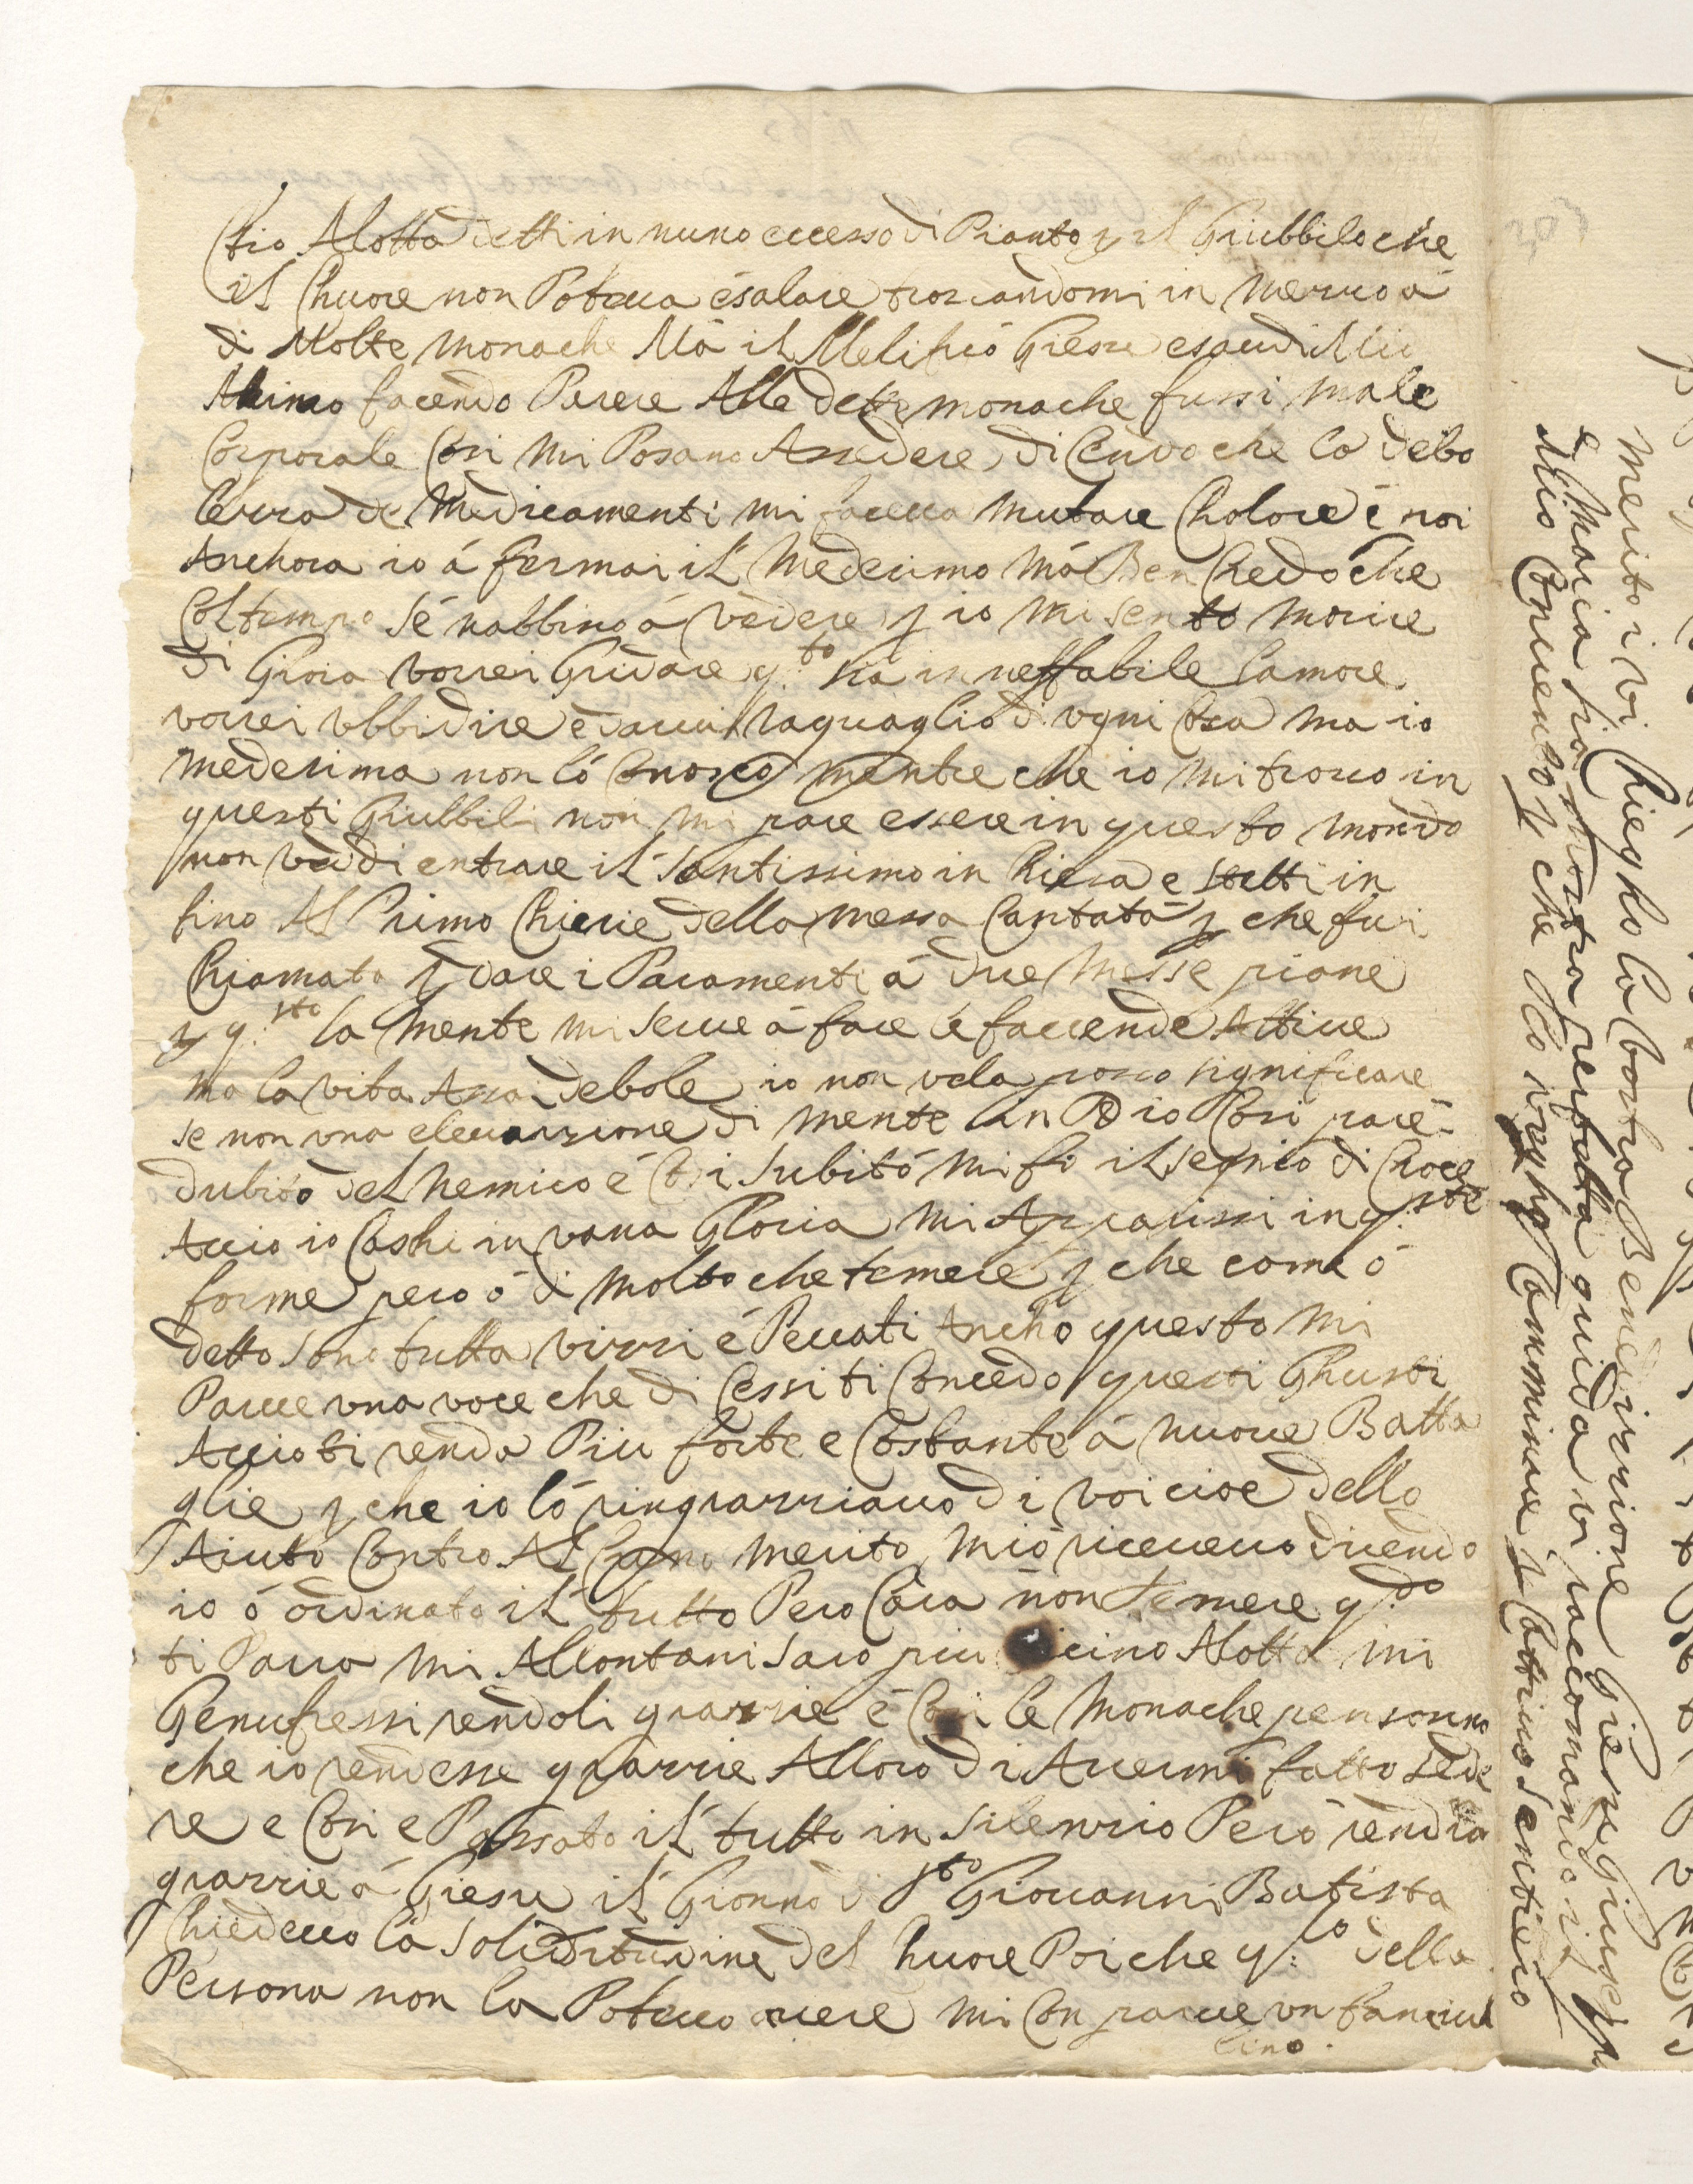 tio Alotta detti in nuno eccesso di Pianto p il Giubbilo che
il Chuore non Poteua ésalare trouandomi in Merro á
di Molte monache Má il Melifió Giesu esaudi Mio
Animo facendo Parere Alle dette monache fussi male
Corporale Cosi Mi Posano Assedere di Cendo che la debo
lerra de Medicamenti mi faceua mutare Cholore é noi
Anchora io á fermai il Medesimo Má Ben Chredo che
Col tempo sé nabbino á vedere p io mi sento morire
di Gioia vorrei Gridare q.to sia in neffabile lamore
vorrei vbbidire é darui raguaglio di ogni Cosa ma io
medesima non ló Cnosco mentre che io mi trouo in
questi Giubbili non mi pare essere in questo mondo
non veddi entrare il Santissimo in Chiesa e stetti in
fino Al Primo Chirie della messa Cantata p che fui
Chiamata p dare i Paramenti á due Messe piane
p q.sto la mente mi serue á fare le faccende Attiue
ma la vita Assai debole io non vela posso significare
se non vna eleuarrione di mente in Dio Cosi pare
dubito del Nemico é Cosi Subitó mi fó il segnio di Croce
Accio io Caschi in vana Gloria mi Apparissi in q.ste
forme pero ó di molto che temere p che come ó
detto sono tutta virri é Peccati Ancho questo mi
Parue vna voce che di Cessi ti Concedo questi Ghusti
Accio ti renda Piu forte e Costante á nuoue Batta
glie p che io ló ringrarriauo di voi cioe dello
Aiuto Contro Al Ogni merito mió riceueuo dicendo
io ó ordinato il tutto Pero Cara non temere q.do
ti Parra mi Allontani saro piu uicino Alotta mi
Genufressi rendoli grarrie é Cosi le Monache pensorno
che io rendesse grarrie Alloro di Auermi fatto sede
re e Cosi e Passato il tutto in silenrio Peró rendia
grarrie á Giesu il Giorno di S.to Giouanni Batista
Chiedeuo la Soliditudine del huore Poi che q.lo della
Persona non la Poteuo auere mi Con parue vn fanciul
lino.
merito i vi Chiegho la vostra Benedirrione Giesu Giusepp
e Maria sia nostra perpetua guida vi raccomando il
Mio Conuento p che Camminare p Cattiuo sentiero